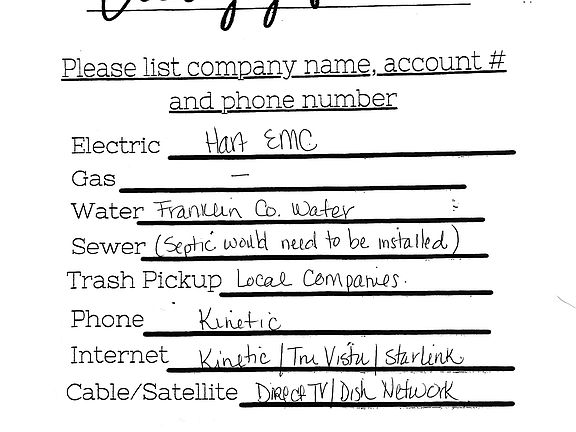 Please list company name, account #
and phone number
Electric Hart EMC
Gas —
Water Franklin Co. Water
Sewer (Septic would need to be installed)
Trash Pickup Local Companies.
Phone Kinetic
Internet Kinetic | Tru Vista | Starlink
Cable/Satellite Direct TV | Dish Network